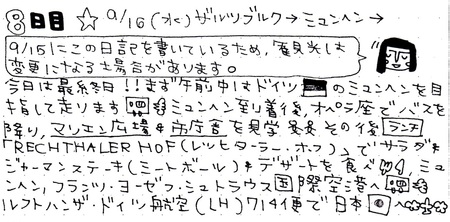 8日目 ☆ 9/16(水) ザルツブルク→ミュンヘン→
9/15にこの日記を書いているため、発見光は
変更になる場合があります。
今日は最終日!!まず午前中はドイツ のミュンヘンを目
指して走ります ミュンヘン到着後、オペラ座でバスを
降り、マリエン広場＆市庁舎を見学 その後 ランチ
「RECHTHALER HOF(レッヒターラー・ホーフ)」でサラダ＆
ジャーマンステーキ(ミートボール)＆デザートを食べ、ミュ
ンヘン、フランツ・ヨーゼフ・シュトラウス国際空港へ
ルフトハンザ・ドイツ航空(LH)714便で日本 へ